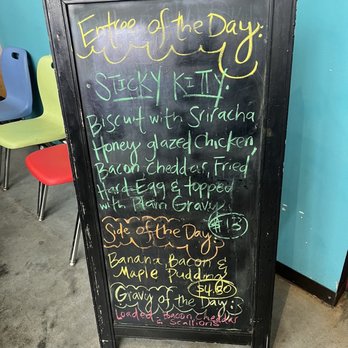 Entree of the Day:
STICKY KITTY
Biscuit with Sriracha
Honey glazed Chicken,
Bacon, Cheddar, Fried
Hard Egg & topped
with Plain Gravy
$13
Side of the Day:
Banana, Bacon &
Maple Pudding
$4.60
Gravy of the Day:
Loaded - Bacon Cheddar
& Scallions